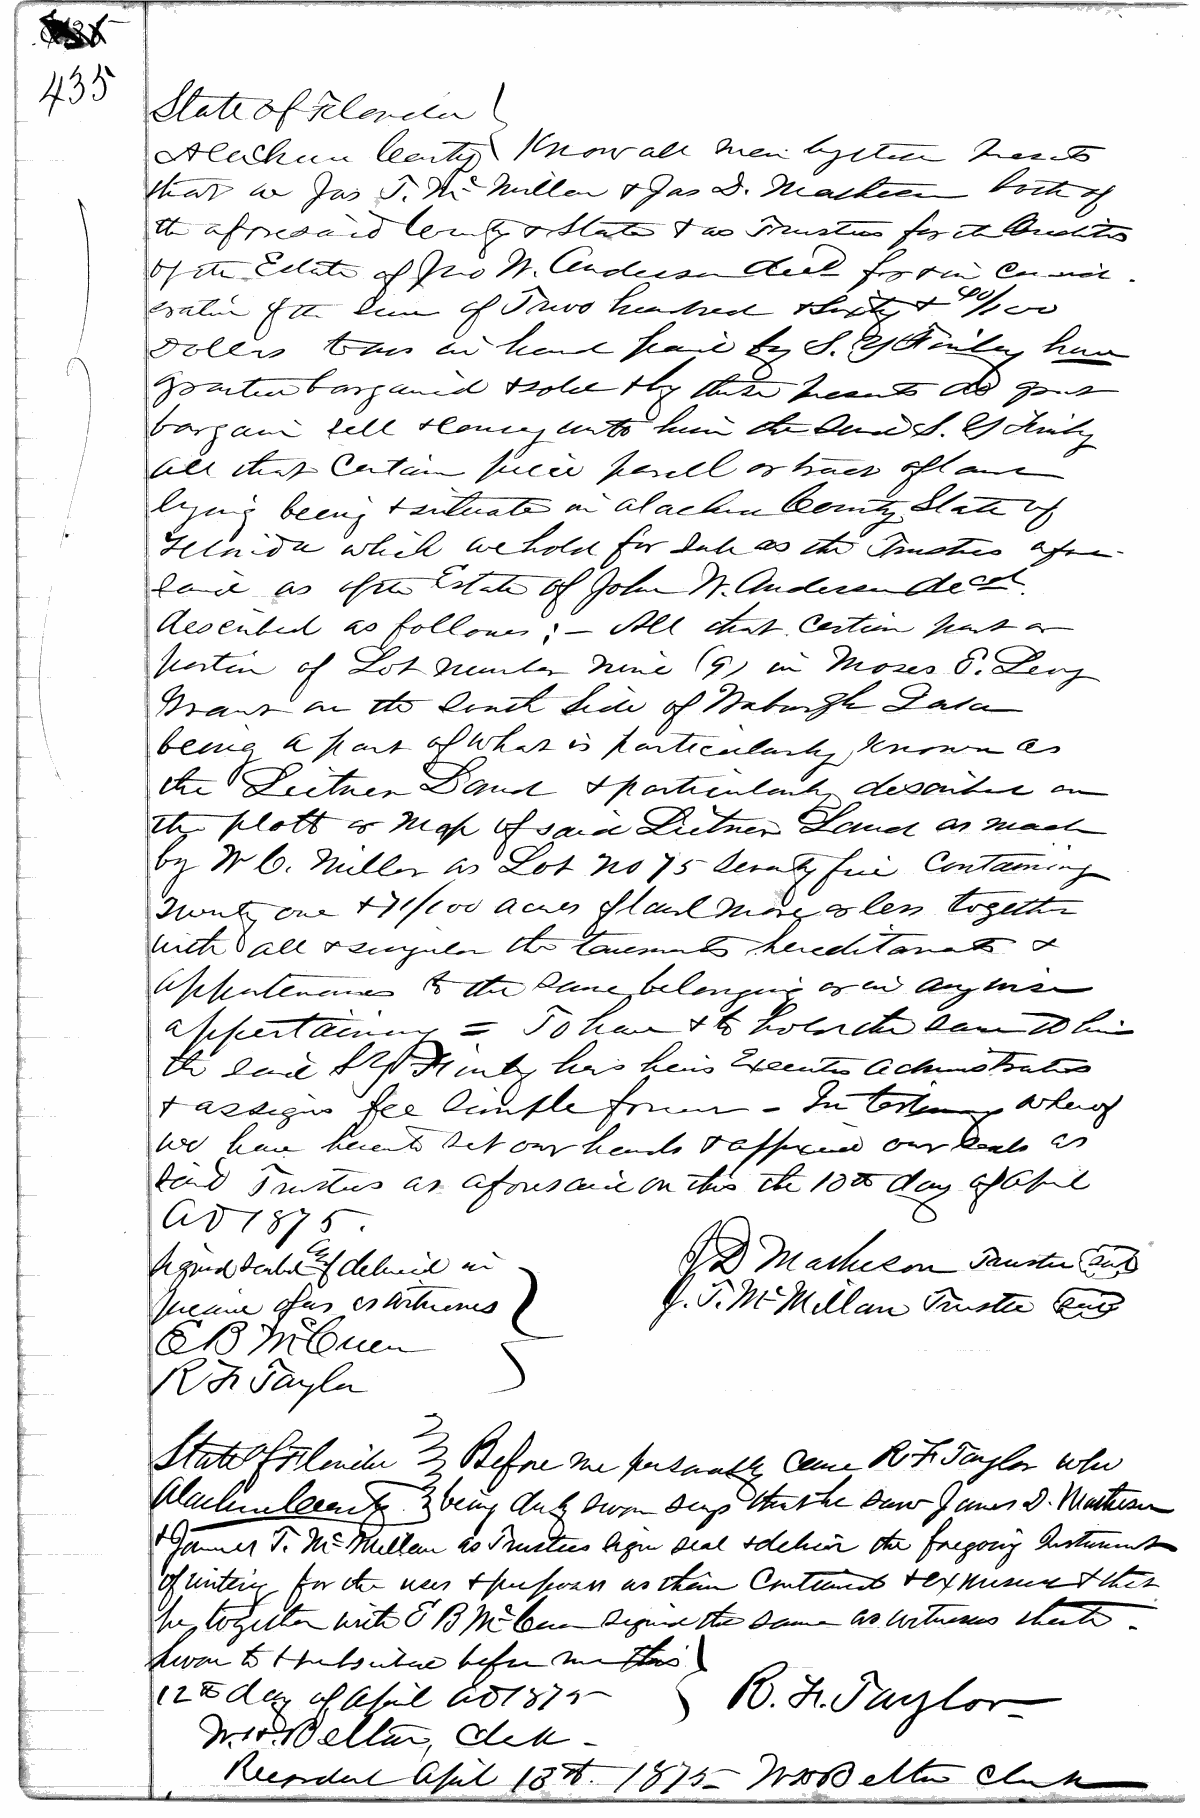 435
State of Florida
Alachua County Know all men by these presents
that we Jas T. McMillan & Jas D. Matheson both of
the aforesaid County & State & as Trustees for the Creditors
of the Estate of Jno W. Anderson decd for & in consid-
eration of the sum of Two hundred & Sixty & 40/100
Dollars to us in hand paid by S. Y Finley have
granted bargained & sold & by these presents do grant
bargain sell & convey unto him the said S. Y Finley
all that certain piece parcell or tract of land
lying being & situate in Alachua County State of
Florida which we hold for sale as the Trustees afore-
said as of the Estate of John W. Anderson decd.
described as follows; – All that certain part or
portion of Lot number nine (9) in Moses E. Levy
Grant on the South Side of Waburgh Lake
being a part of what is particularly known as
the Leitner Land & particularly described on
the plott or Map of said Leitner Land as made
by W C. Miller as Lot no 75 Seventy five containing
Twenty one & 71/100 acres of land more or less together
with all & singular the tenements hereditaments &
appurtenances to the same belonging or in any wise
appertaining = To have & to hold the same to him
the said S Y Finley his heirs Executors administrators
& assigns fee simple forever – In testimony whereof
we have hereunto set our hands & affixed our seals as
said Trustees as aforesaid on this the 10th day of April
AD 1875.
Signed sealed & delivered in
presence of us as witnesses
J D Matheson Trustee Seal
J. T. McMillan Trustee Seal
E B McCuen
R F Taylor
State of Florida Before me personally came R F Taylor who
Alachua County being duly sworn says that he saw James D. Matheson
& James T. McMillan as Trustees sign seal & deliver the foregoing Instrument
of writing for the uses & purposes as therein contained & expressed & that
he together with E B McCuen signed the same as witnesses thereto.
Sworn to & subscribed before me this
12th day of April AD 1875
R. F. Taylor
W. H. Belton, Clerk –
Recorded April 13th. 1875 – W H Belton Clerk